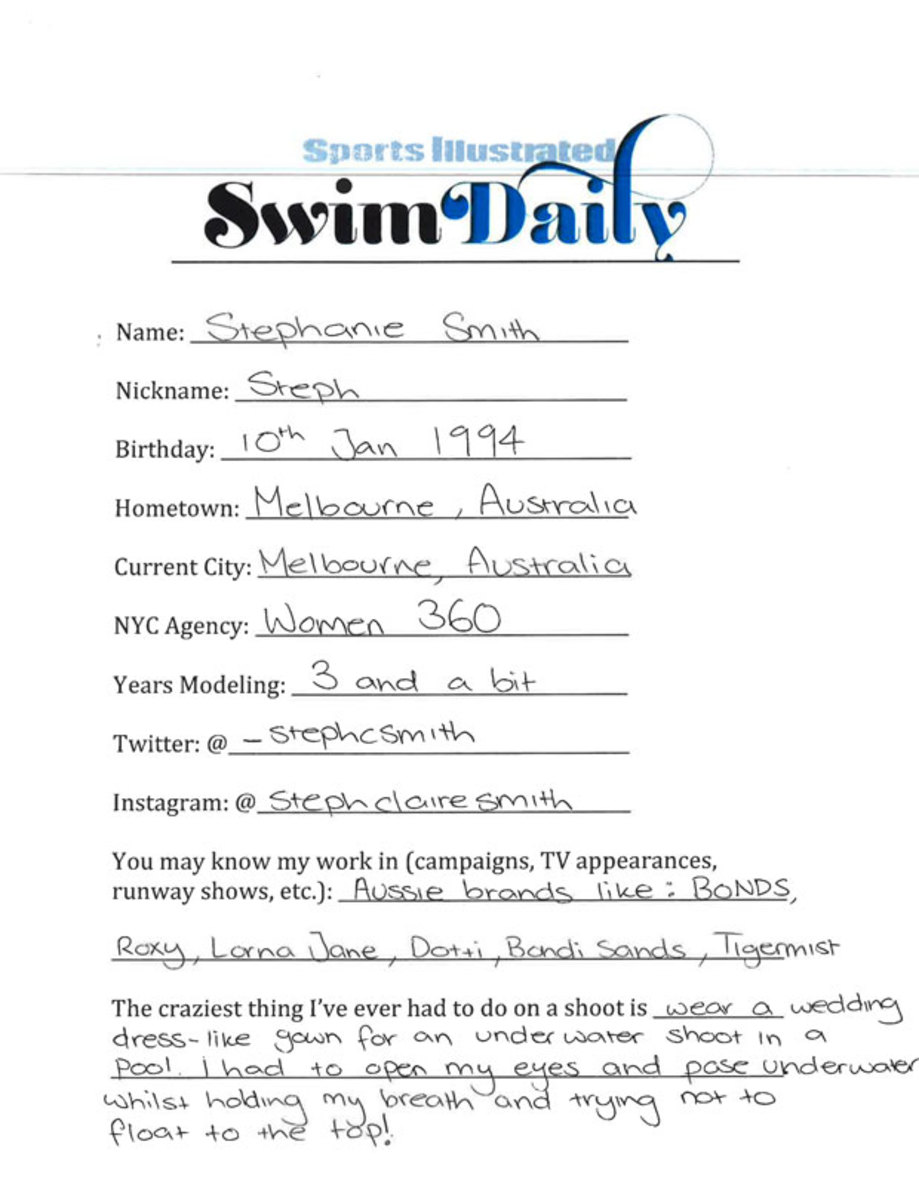 Sports Illustrated
Swim Daily
Name: Stephanie Smith
Nickname: Steph
Birthday: 10th Jan 1994
Hometown: Melbourne, Australia
Current City: Melbourne, Australia
NYC Agency: Women 360
Years Modeling: 3 and a bit
Twitter: @ _stephcsmith
Instagram: @ stephclairesmith
You may know my work in (campaigns, TV appearances,
runway shows, etc.): Aussie brands like: BONDS,
Roxy, Lorna Jane, Dotti, Bondi Sands, Tigermist
The craziest thing I've ever had to do on a shoot is wear a wedding
dress-like gown for an underwater shoot in a
pool. I had to open my eyes and pose underwater
whilst holding my breath and trying not to
float to the top!